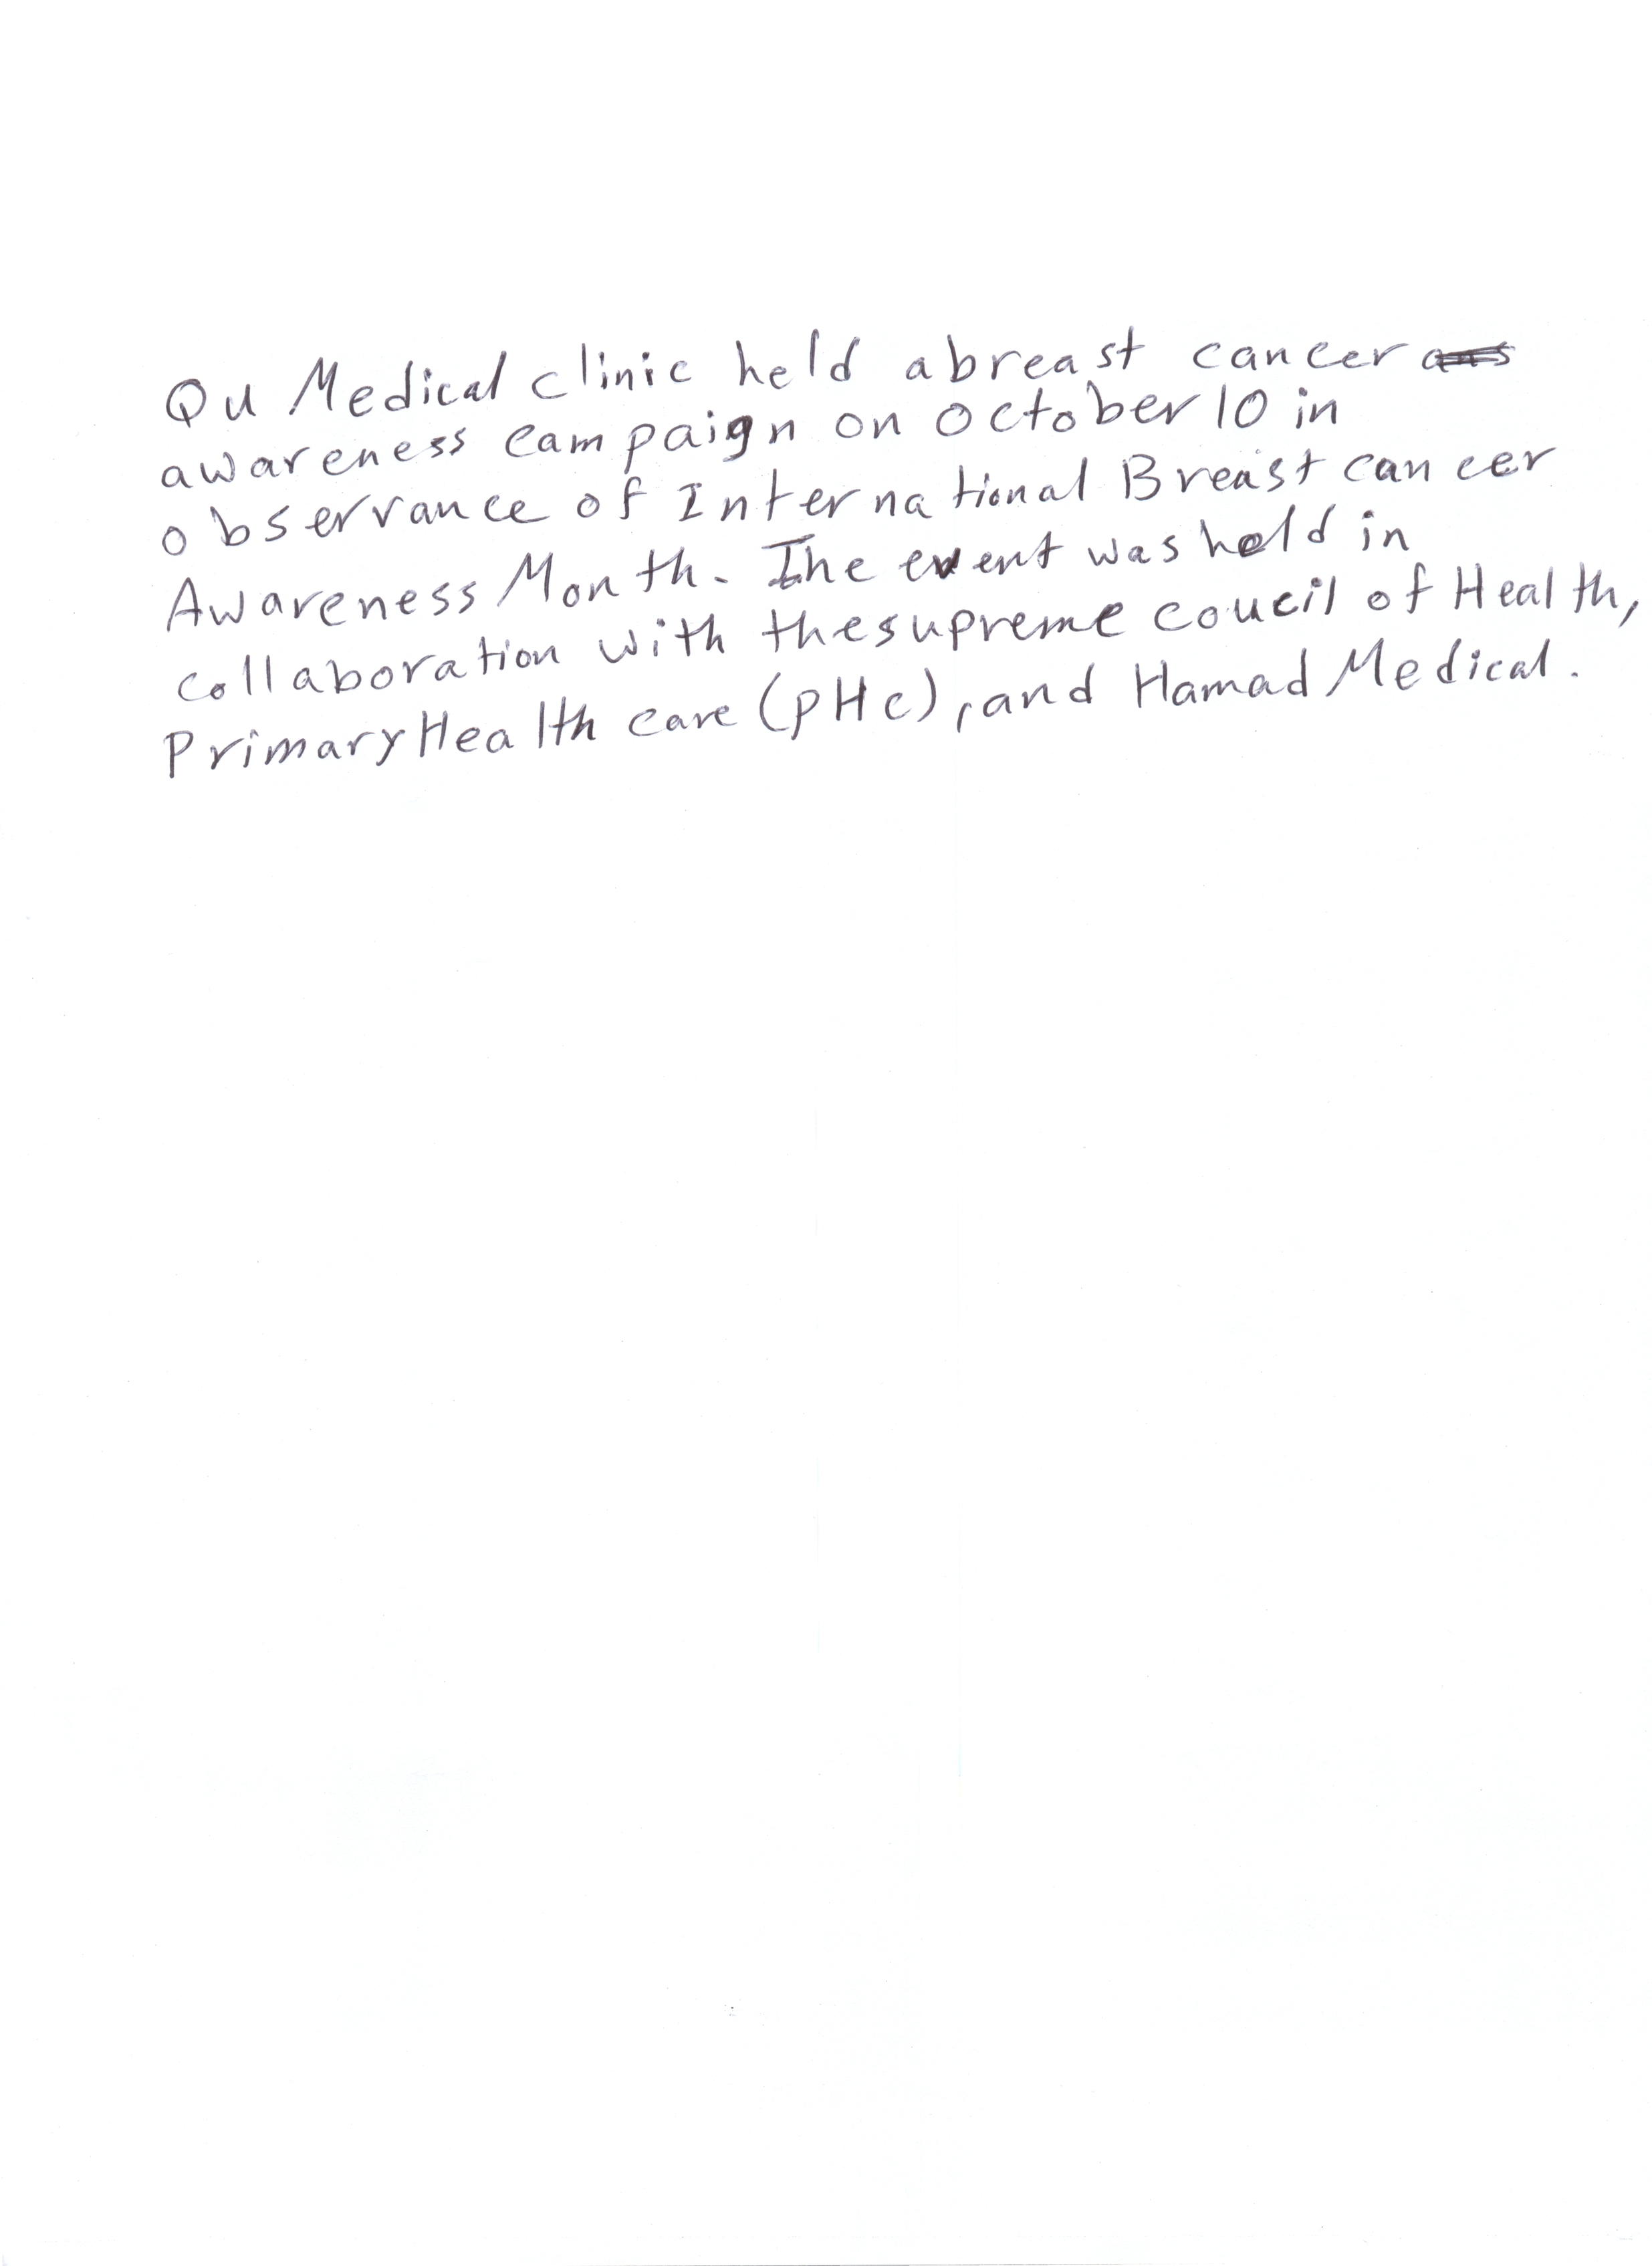 QU Medical clinic held a breast cancer
awareness campaign on October 10 in
observance of International Breast cancer
Awareness Month. The event was held in
collaboration with the supreme coucil of Health,
Primary Health care (PHC), and Hamad Medical.